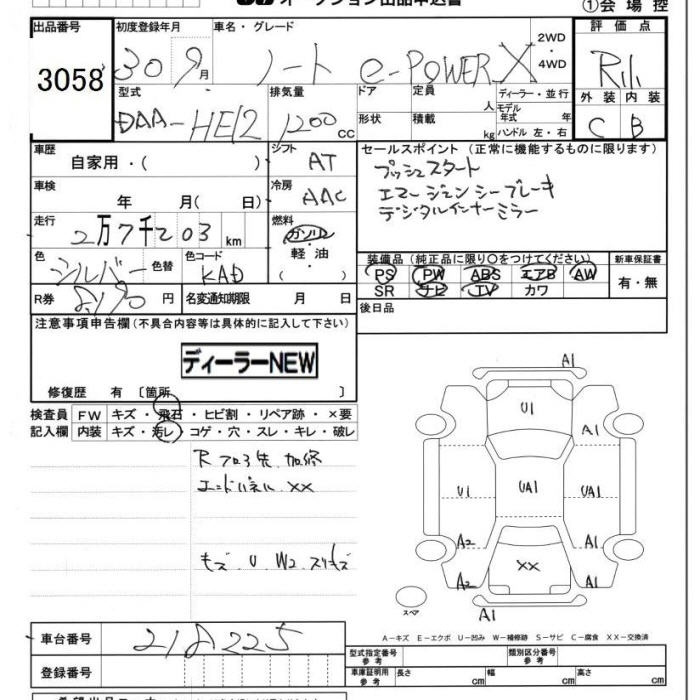 オークション出品申込書
①会場控
出品番号 3058
初度登録年月 30 9月
車名・グレード ノート e-POWER X
2WD・4WD
評価点 R1
外装 C 内装 B
型式 DAA-HE12
排気量 1200 CC
ドア 形状
定員 人
積載 kg
ディーラー・並行
モデル年式 年
ハンドル 左・右
車歴 自家用・( )
シフト AT
車検 年 月( 日)
冷房 AAC
走行 2万7千203 km
燃料 ガソリン・軽油・( )
色 シルバー 色替
色コード KAD
R券 円
名変通知期限 月 日
セールスポイント(正常に機能するものに限ります)
プッシュスタート
エマージェンシーブレーキ
デジタルインナーミラー
装備品(純正品に限り○をつけてください)
PS PW ABS エアB AW
SR ナビ TV カワ
新車保証書 有・無
後日品
注意事項申告欄(不具合内容等は具体的に記入して下さい)
ディーラーNEW
修復歴 有〔箇所 〕
検査員記入欄
FW キズ・飛石・ヒビ割・リペア跡・×要
内装 キズ・汚レ・コゲ・穴・スレ・キレ・破レ
エンドパネル XX
キズ U W2 スリキズ
A1
U1
A1
U1 UA1 UA1
A2 A1
XX
A2 A1
スペア
A1
A-キズ E-エクボ U-凹み W-補修跡 S-サビ C-腐食 XX-交換済
車台番号 218225
登録番号
型式指定番号 参考
類別区分番号 参考
車庫証明用 参考 長さ cm 幅 cm 高さ cm